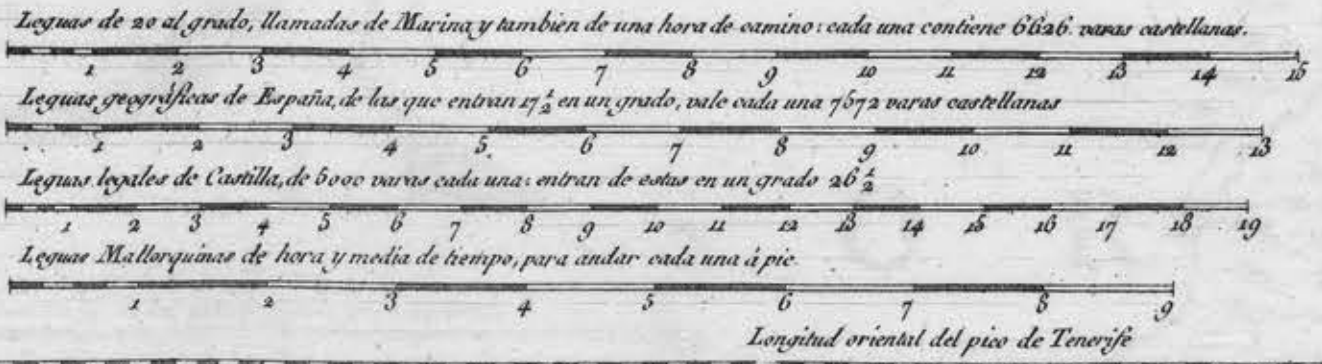 Leguas de 20 al grado, llamadas de Marina y tambien de una hora de camino: cada una contiene 6626. varas castellanas.
1 2 3 4 5 6 7 8 9 10 11 12 13 14 15
Leguas geográficas de España, de las que entran 17 1/2 en un grado, vale cada una 7572 varas castellanas
1 2 3 4 5 6 7 8 9 10 11 12 13
Leguas legales de Castilla, de 5000 varas cada una: entran de estas en un grado 26 1/2
1 2 3 4 5 6 7 8 9 10 11 12 13 14 15 16 17 18 19
Leguas Mallorquinas de hora y media de tiempo, para andar cada una á pie
1 2 3 4 5 6 7 8 9
Longitud oriental del pico de Tenerife